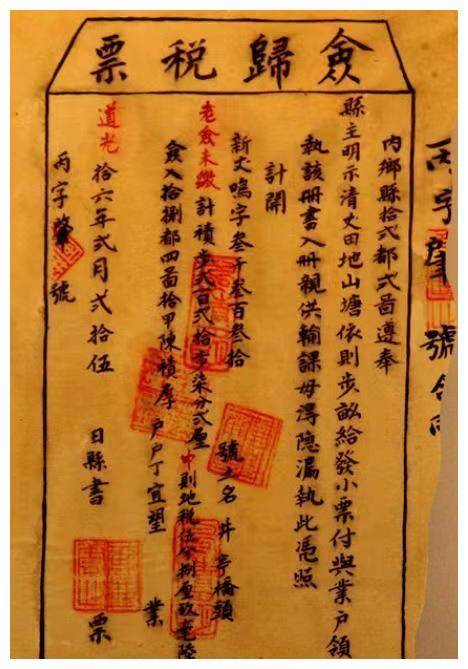 僉歸稅票
內鄉縣拾弍都弍啚遵奉
縣主明示清丈田地山塘依則步畝給發小票付與業戶領
執該冊書入冊親供輸課毋得隱漏執此憑照
計開
新丈鳴字叁千叁百叁拾 號土名井亭橋頭
老僉未繳計積步弍百弍拾 步柒分弍厘 中則地稅伍分捌厘
僉入拾捌都四啚拾甲陳積厚戶戶丁宜望 業
道光拾六年弍月弍拾伍 日縣書 票
丙字 號
丙字 號合同